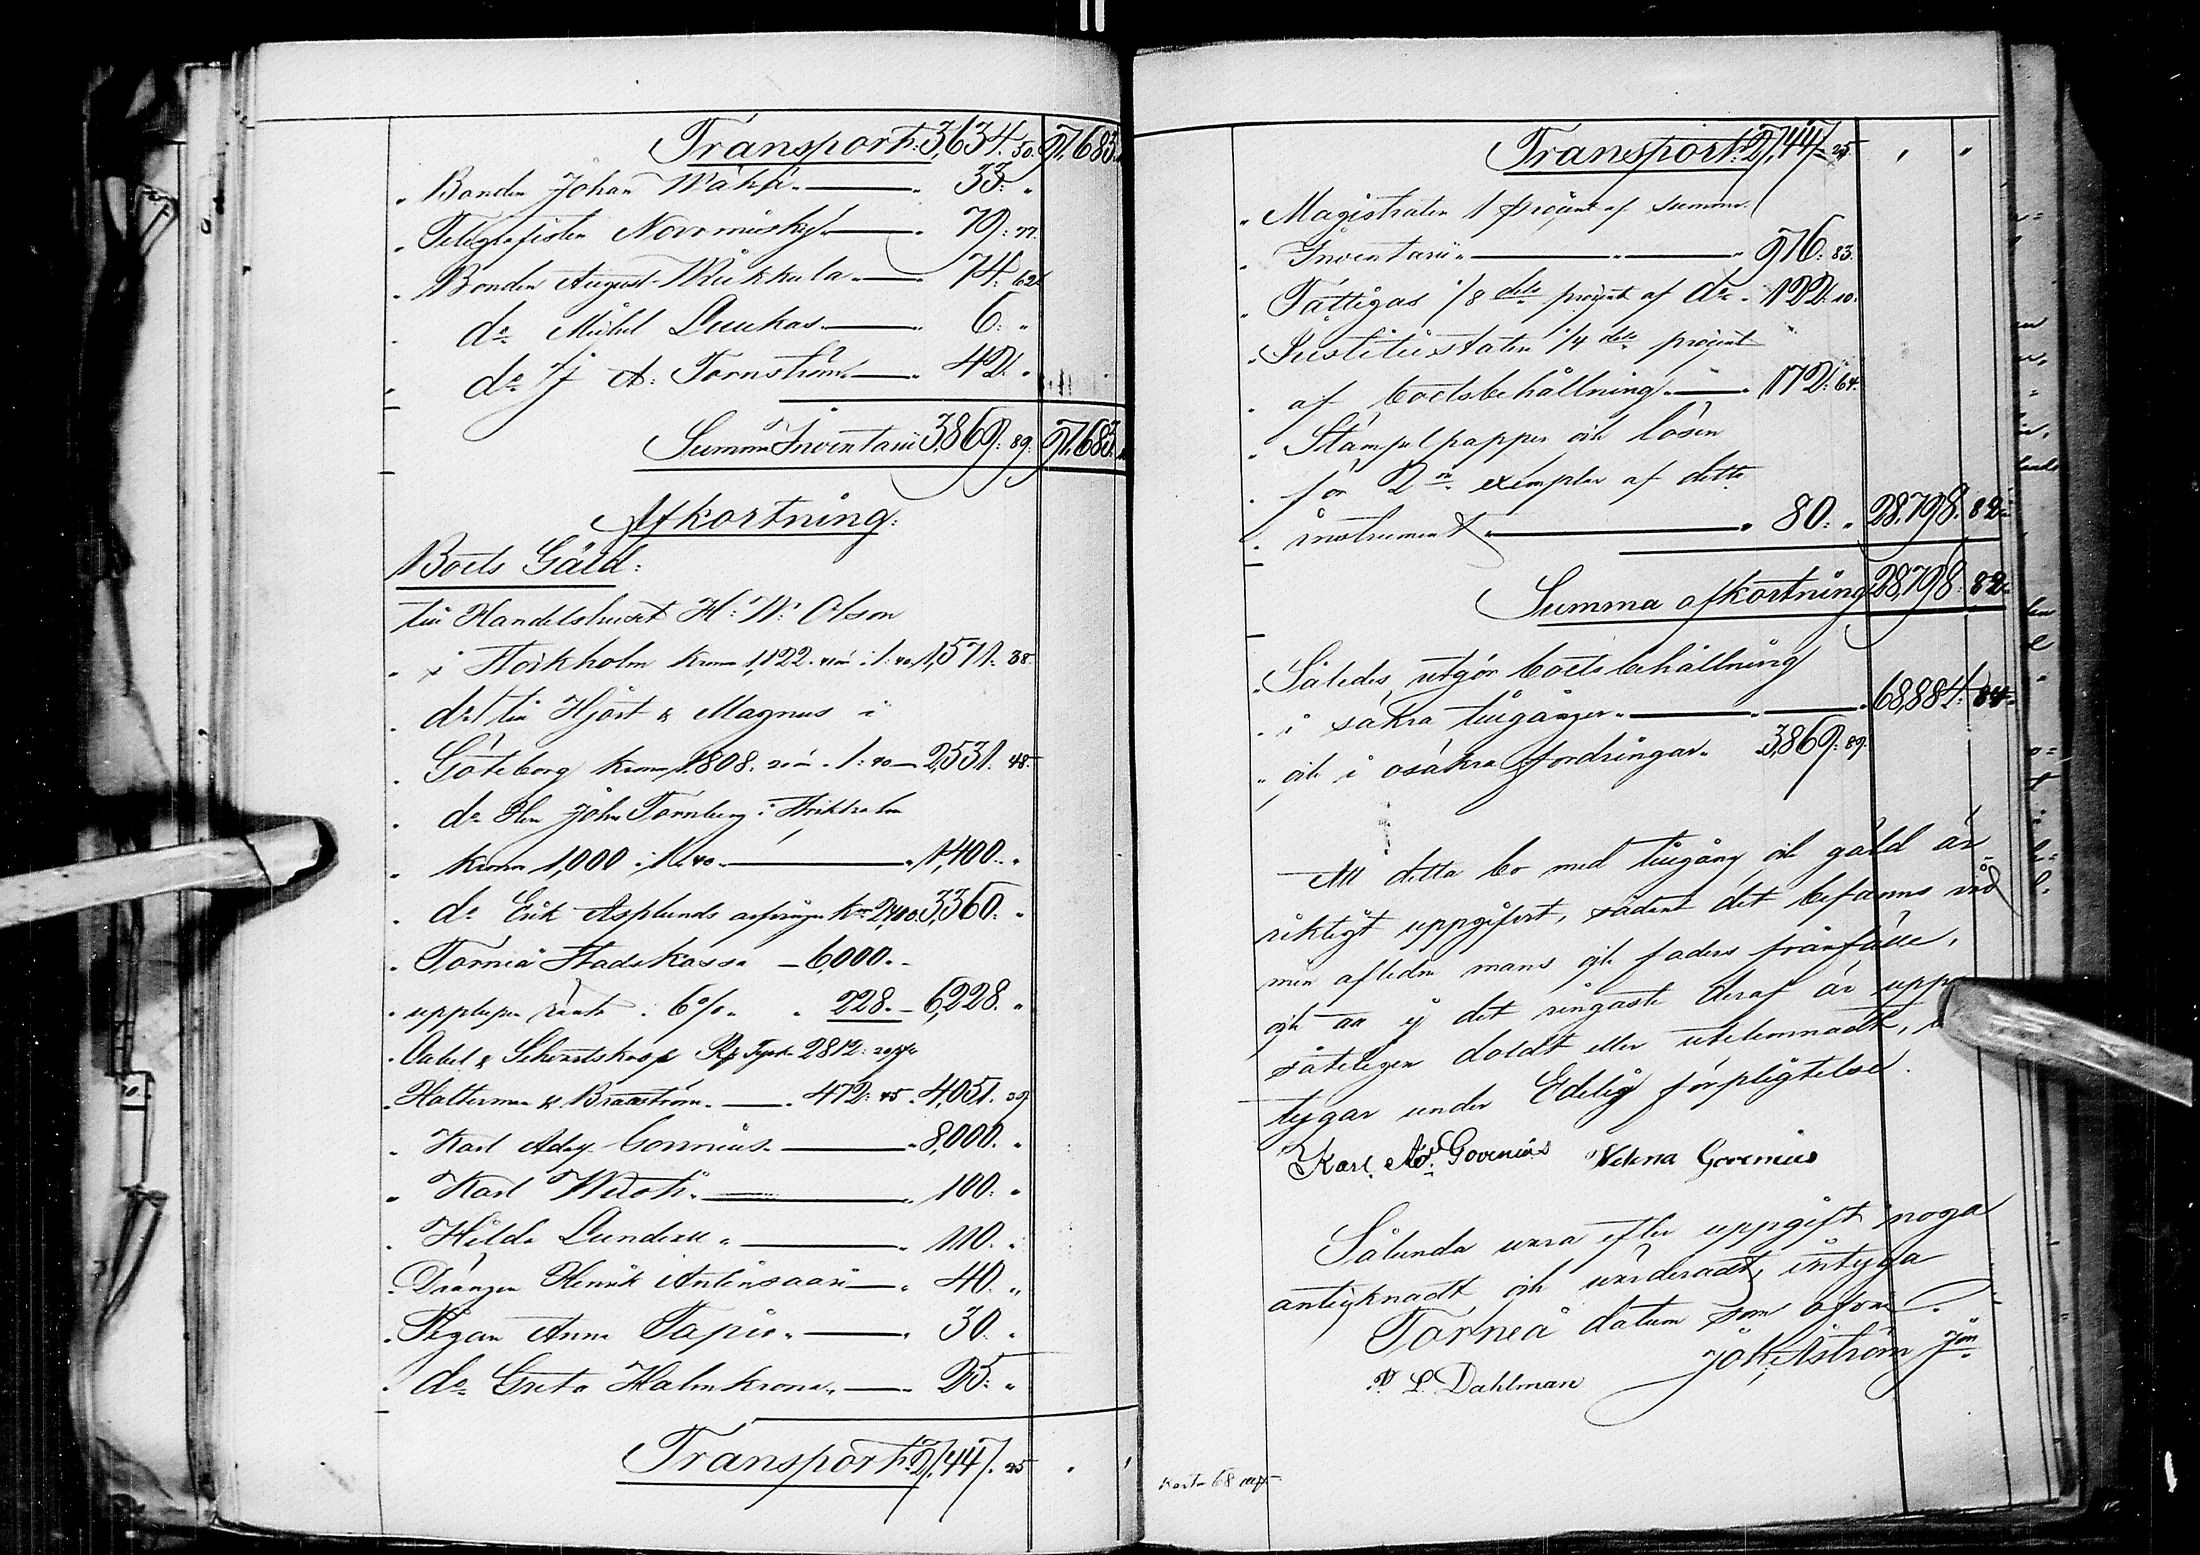 Transport: 3,634. 50. 97,683.
" Bonden Johan Wähä " 33: "
" Telegrafisten Novominsky " 79: 77.
" Bonden August Wiikkula " 74: 62
" do Michel Luukas " 6: "
" do J A: Tornström " 42: "
Summa Inventarii 3,869: 89. 97,683.
Afkortning:
Boets Gäld:
till Handelshuset H: W: Olson
" i Stockholm Kronor 1,122. " 1: 40. 1,571. 38.
" do till Hjort & Magnus i
" Göteborg Kronor 1808. 1: 40 2,531. 48.
" do Herr John Törnberg i Stockholm
" Kronor 1,000 : 1: 40 " 1,400. "
" do Erik Asplunds Kr 2,400. 3,360. "
" Torneå Stadskassa 6,000. "
" upplupen ränta 6% " 228. 6,228. "
" & Schwartskopf 2812:
" Halterman & Braaström 472: 45. 4,051. 39
" Karl Adg Govenius " 8,000. "
" Karl " 100: "
" Hilda Lundell " " 110. "
" Drängen Henrik Antinsaari " 40. "
" Pigan Anna Tapio " " 30. "
" do Greta Halmkrona " " 25: "
Transport: 27,447. 25 " "
Transport: 27,447. 25 " "
" Magistraten 1 procent af summa
" Inventarii " " 976: 83.
" Fattigas 1/8 dels procent af do " 122: 10.
" Justitiistaten 1/4 dels procent
" af boets behållning " 172: 64.
" Stämpelpapper och lösen
" för 2ne exemplar af detta
" instrument " 80: " 28,798. 82.
Summa afkortning 28,798. 82.
" Således utgör boets behållning
" i säkra tillgångar " " 68,884. 84.
" och i osäkra fordringar " 3,869: 89.
Att detta bo med tillgång och gäld är
riktigt uppgifvet, sådant det befanns vid
min aflidne mans och faders frånfälle,
och att ej det ringaste deraf är upp-
såteligen doldt eller utelemnadt,
tygar under Edelig förpligtelse.
Karl Ad: Govenius Helena Govenius
Sålunda vara efter uppgift noga
antecknadt och värderadt, intyga
Torneå datum som ofvan.
Joh. Åström Jon
L. Dahlman
Karta 68